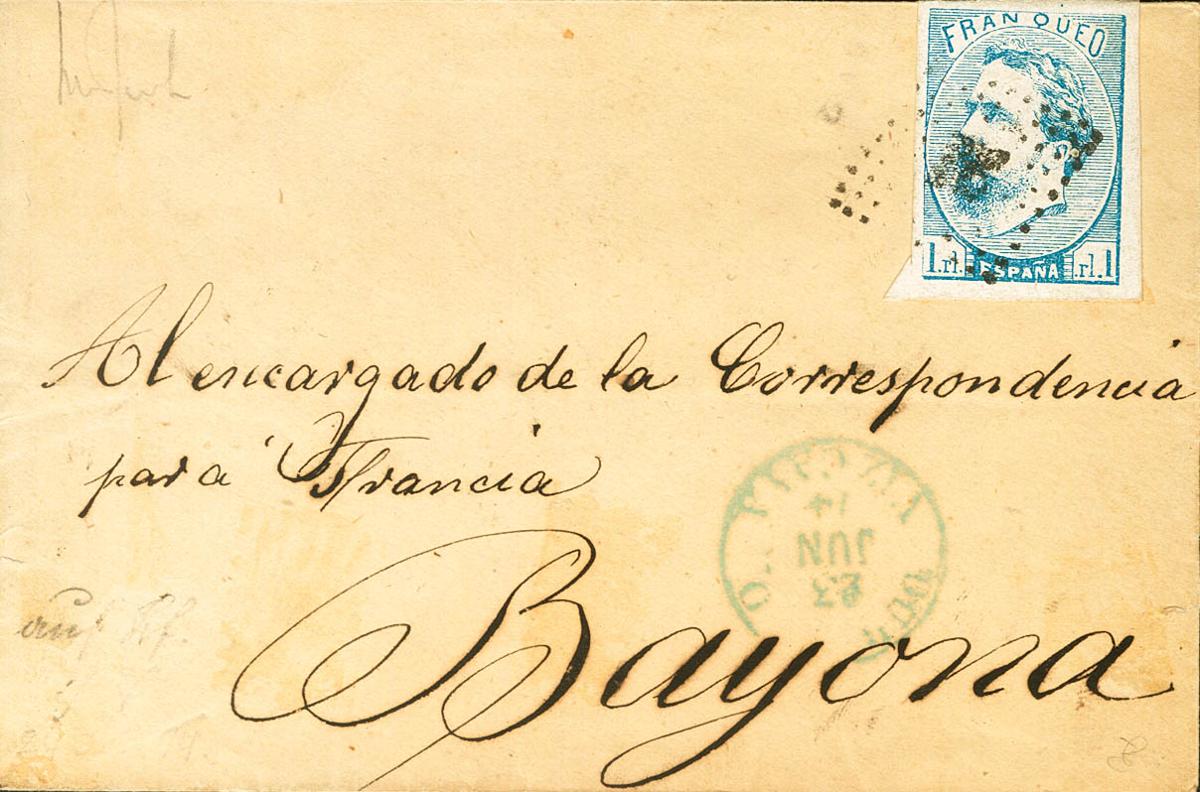 FRANQUEO
1.rl. ESPAÑA rl.1
Al encargado de la Correspondencia
para Francia
Bayona
23
JUN
74